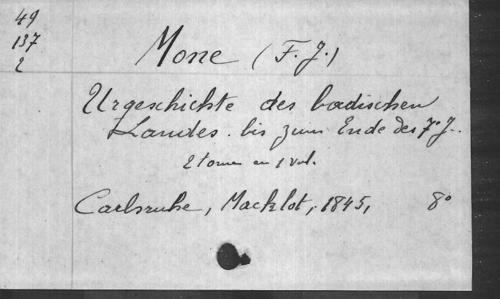 49
137
2
Mone (F. J.)
Urgeschichte des badischen
Landes. bis zum Ende des 7e J..
2 tome en 1 vol.
Carlsruhe, Macklot, 1845, 8°